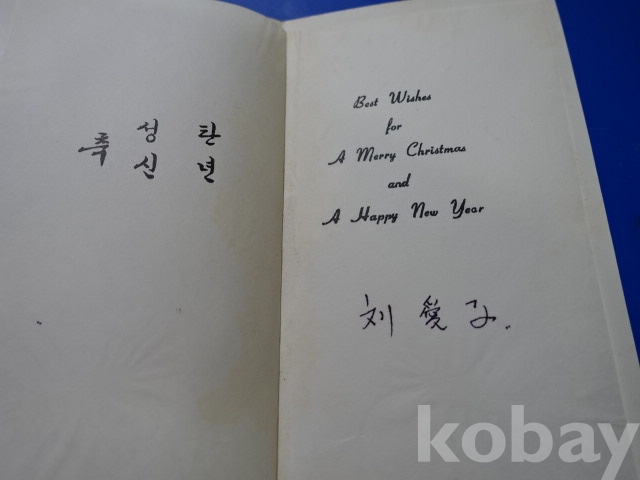 성 탄
축
신 년
Best Wishes
for
A Merry Christmas
and
A Happy New Year
刘愛子.
kobay